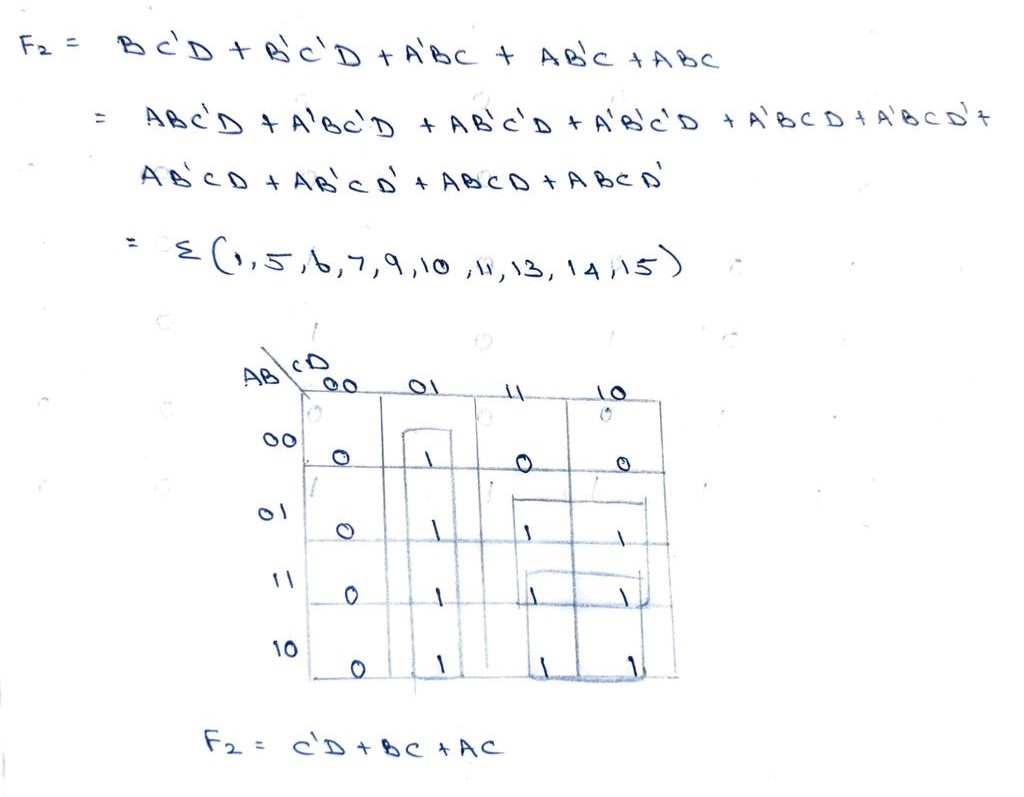 F2 = BC'D + B'C'D + A'BC + AB'C + ABC
= ABC'D + A'BC'D + AB'C'D + A'B'C'D + A'BCD + A'BCD' +
AB'CD + AB'CD' + ABCD + ABCD'
= Σ(1,5,6,7,9,10,11,13,14,15)
AB \ CD
00 01 11 10
00 0 1 0 0
01 0 1 1 1
11 0 1 1 1
10 0 1 1 1
F2 = C'D + BC + AC